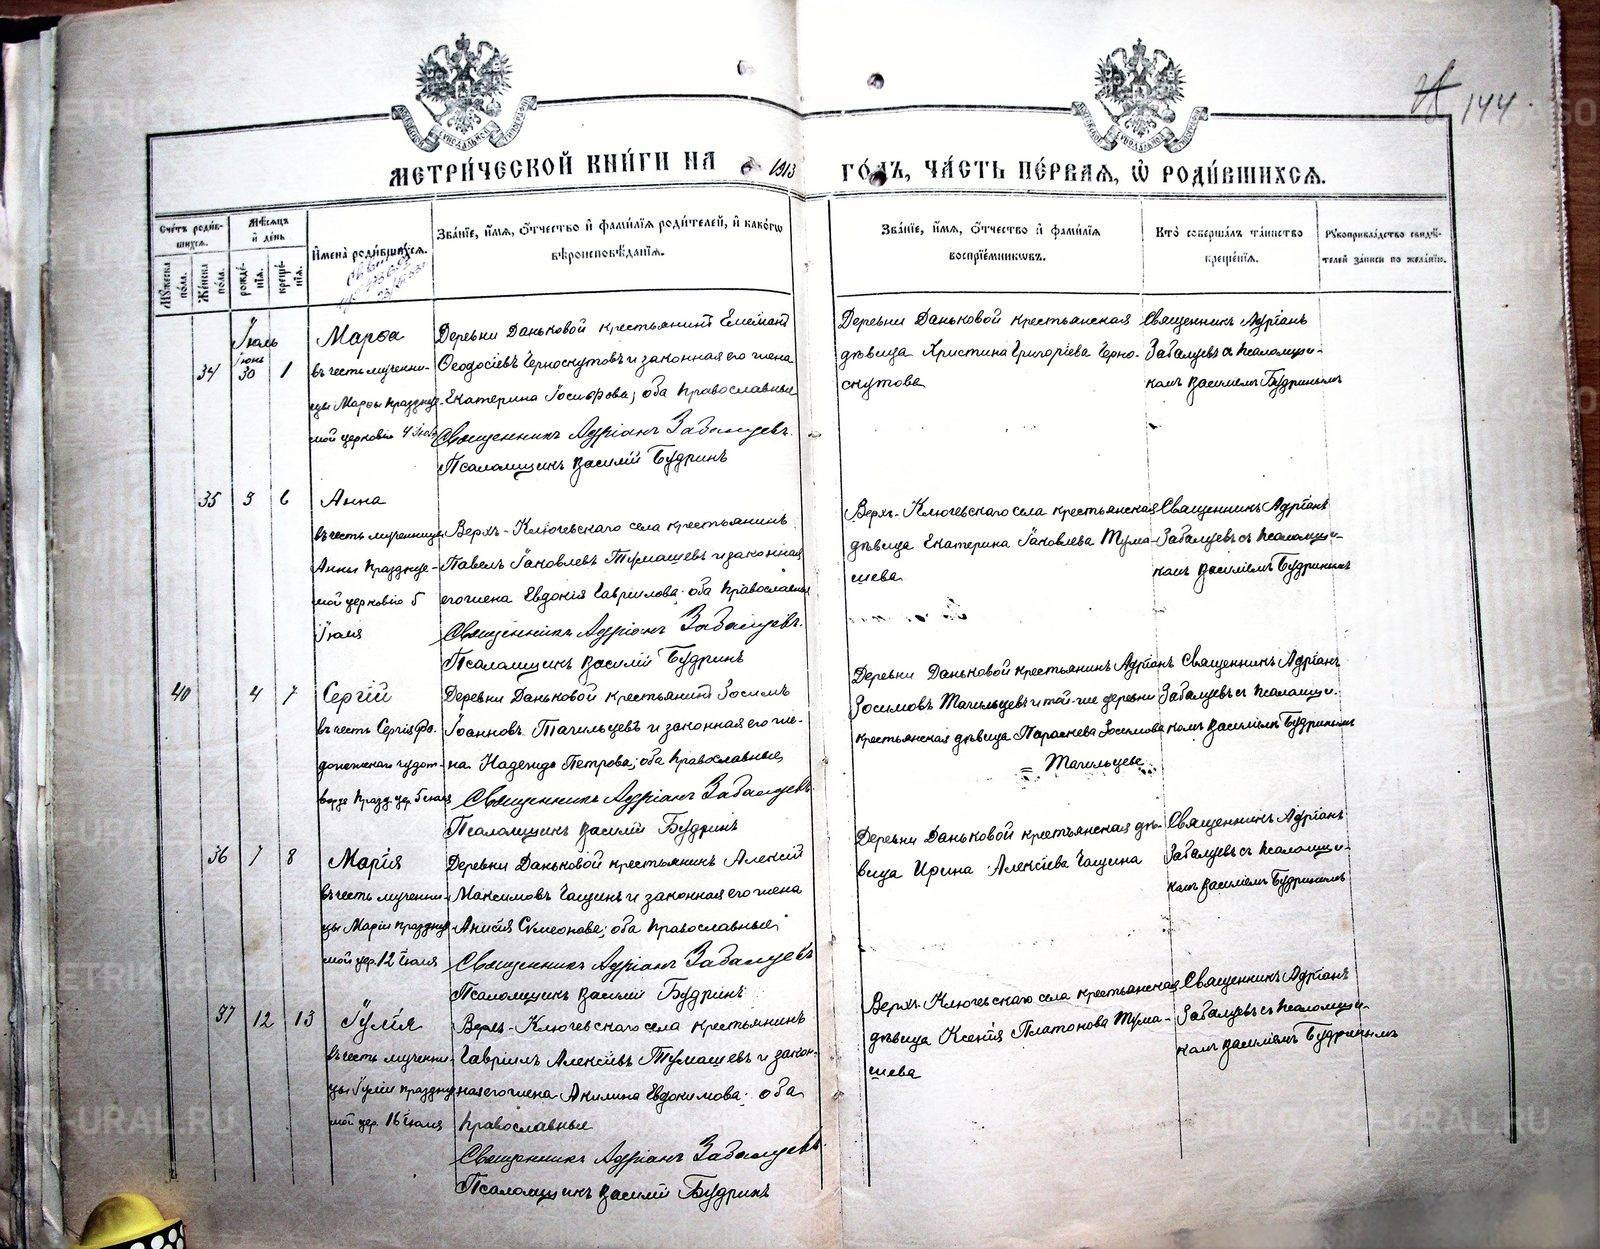 144
МЕТРИ́ЧЕСКОЙ КНИ́ГИ НА 1913 ГО́ДЪ, ЧА́СТЬ ПЕ́РВАѦ, Ѽ РОДИ́ВШИХСѦ.
Сче́тъ роди́вшихсѧ.
Мꙋ́жеска по́ла.
Же́нска по́ла.
Мѣ́сѧцъ и҆ де́нь
рожде́нїѧ.
креще́нїѧ.
И҆мена̀ роди́вшихсѧ.
Зва́нїе, и҆́мѧ, ѻ҆́тчество и҆ фами́лїѧ роди́телей, и҆ како́гѡ вѣроисповѣ́данїѧ.
Зва́нїе, и҆́мѧ, ѻ҆́тчество и҆ фами́лїѧ воспрїе́мникѡвъ.
Кто̀ соверша́лъ та́инство креще́нїѧ.
Рꙋкоприкла́дство свидѣ́телей за́писи по жела́нїю.
Іюль
34
Іюнь
30
1
Марѳа
въ честь мучени-
цы Марѳы празднуе-
мой церковію 4 Іюля
Деревни Даньковой крестьянинъ Елемант
Ѳеодосіевъ Черноскутовъ и законная его жена
Екатерина Іосифова; оба православные
Священникъ Адріанъ Забалуевъ.
Псаломщикъ Василій Будринъ
Деревни Даньковой крестьянская
дѣвица Христина Григоріева Черно-
скутова
Священникъ Адріанъ
Забалуевъ съ псаломщи-
комъ Василіемъ Будринымъ
35
5
6
Анна
въ честь мученицы
Анны празднуе-
мой церковію 5
Іюля
Верхъ-Ключевскаго села крестьянинъ
Павелъ Іаковлевъ Тумашевъ и законная
его жена Евдокія Гавріилова; оба православные
Священникъ Адріанъ Забалуевъ.
Псаломщикъ Василій Будринъ
Верхъ-Ключевскаго села крестьянская
дѣвица Екатерина Іаковлева Тума-
шева
Священникъ Адріанъ
Забалуевъ съ псаломщи-
комъ Василіемъ Будринымъ
40
4
7
Сергій
въ честь Сергія Ра-
донежскаго чудот-
ворца празд. цер. 5 іюля
Деревни Даньковой крестьянинъ Зосимъ
Іоанновъ Тагильцевъ и законная его же-
на Надежда Петрова; оба православные
Священникъ Адріанъ Забалуевъ
Псаломщикъ Василій Будринъ
Деревни Даньковой крестьянинъ Адріанъ
Зосимовъ Тагильцевъ и той-же деревни
крестьянская дѣвица Параскева Зосимова
Тагильцева
Священникъ Адріанъ
Забалуевъ съ псаломщи-
комъ Василіемъ Будринымъ
36
7
8
Марія
въ честь мучени-
цы Маріи празднуе-
мой цер. 12 Іюля
Деревни Даньковой крестьянинъ Алексій
Максимовъ Гащинъ и законная его жена
Анисія Сѵмеонова; оба православные
Священникъ Адріанъ Забалуевъ
Псаломщикъ Василій Будринъ
Деревни Даньковой крестьянская дѣ-
вица Ирина Алексіева Гащина
Священникъ Адріанъ
Забалуевъ съ псаломщи-
комъ Василіемъ Будринымъ
37
12
13
Іулія
въ честь мучени-
цы Іуліи празднуе-
мой цер. 16 Іюля
Верхъ-Ключевскаго села крестьянинъ
Гавріилъ Алексіевъ Тумашевъ и закон-
ная его жена Акилина Евдокимова; оба
православные
Священникъ Адріанъ Забалуевъ
Псаломщикъ Василій Будринъ
Верхъ-Ключевскаго села крестьянская
дѣвица Ксенія Платонова Тума-
шева
Священникъ Адріанъ
Забалуевъ съ псаломщи-
комъ Василіемъ Будринымъ